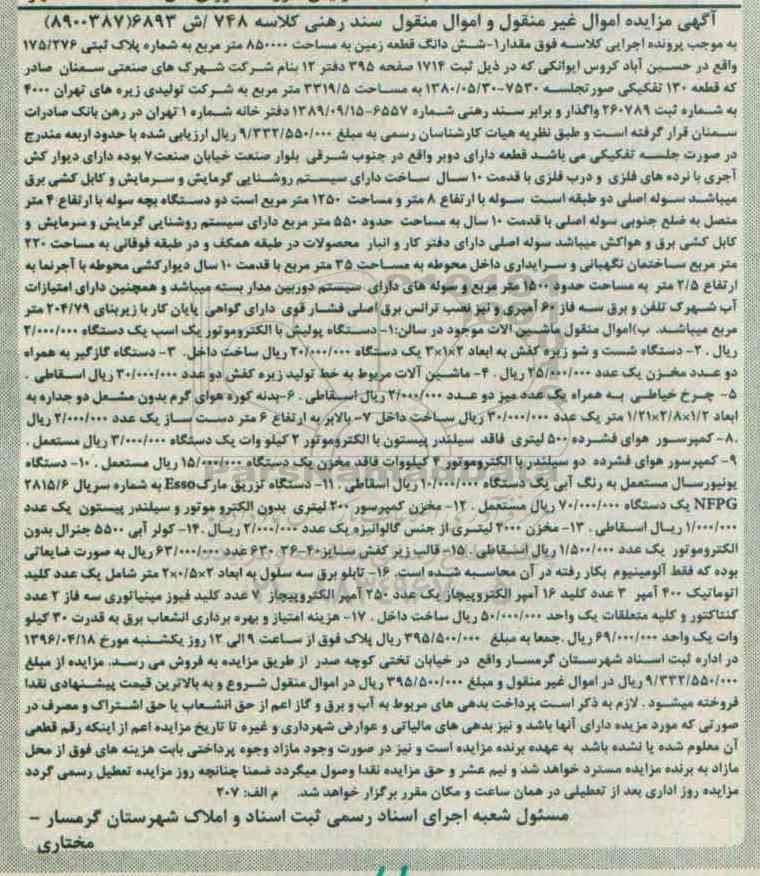 آگهی مزایده اموال غیر منقول و اموال منقول سند رهنی کلاسه ۷۴۸ /ش ۶۸۹۳(۸۹۰۰۳۸۷)
به موجب پرونده اجرایی کلاسه فوق مقدار۱-شش دانگ قطعه زمین به مساحت ۸۵۰۰۰۰ متر مربع به شماره پلاک ثبتی ۱۷۵/۲۷۶
واقع در حسین آباد کروس ایوانکی که در ذیل ثبت ۱۷۱۴ صفحه ۳۹۵ دفتر ۱۲ بنام شرکت شهرک های صنعتی سمنان صادر
که قطعه ۱۳۰ تفکیکی صورتجلسه ۷۵۳۰-۱۳۸۰/۰۵/۳۰ به مساحت ۳۳۱۹/۵ متر مربع به شرکت تولیدی زیره های تهران ۴۰۰۰
به شماره ثبت ۲۶۰۷۸۹ واگذار و برابر سند رهنی شماره ۶۵۵۷-۱۳۸۹/۰۹/۱۵ دفتر خانه شماره ۱ تهران در رهن بانک صادرات
سمنان قرار گرفته است و طبق نظریه هیات کارشناسان رسمی به مبلغ ۹/۳۳۲/۵۵۰/۰۰۰ ریال ارزیابی شده با حدود اربعه مندرج
در صورت جلسه تفکیکی می باشد قطعه دارای دوبر واقع در جنوب شرقی بلوار صنعت خیابان صنعت۷ بوده دارای دیوار کش
آجری با نرده های فلزی و درب فلزی با قدمت ۱۰ سال ساخت دارای سیستم روشنایی گرمایش و سرمایش و کابل کشی برق
میباشد سوله اصلی دو طبقه است سوله با ارتفاع ۸ متر و مساحت ۱۲۵۰ متر مربع است دو دستگاه بچه سوله با ارتفاع ۴ متر
متصل به ضلع جنوبی سوله اصلی با قدمت ۱۰ سال به مساحت حدود ۵۵۰ متر مربع دارای سیستم روشنایی گرمایش و سرمایش و
کابل کشی برق و هواکش میباشد سوله اصلی دارای دفتر کار و انبار محصولات در طبقه همکف و در طبقه فوقانی به مساحت ۲۲۰
متر مربع ساختمان نگهبانی و سرایداری داخل محوطه به مساحت ۳۵ متر مربع با قدمت ۱۰ سال دیوارکشی محوطه با آجرنما به
ارتفاع ۲/۵ متر به مساحت حدود ۱۵۰۰ متر مربع و سوله های دارای سیستم دوربین مدار بسته میباشد و همچنین دارای امتیازات
آب شهرک تلفن و برق سه فاز ۶۰ آمپری و نیز نصب ترانس برق اصلی فشار قوی دارای گواهی پایان کار با زیربنای ۲۰۴/۷۹ متر
مربع میباشد. ب)اموال منقول ماشین الات موجود در سالن:۱- دستگاه پولیش با الکتروموتور یک اسب یک دستگاه ۲/۰۰۰/۰۰۰
ریال . ۲- دستگاه شست و شو زیره کفش به ابعاد ۲×۱×۳ یک دستگاه ۲۰/۰۰۰/۰۰۰ ریال ساخت داخل. ۳- دستگاه گازگیر به همراه
دو عدد مخزن یک عدد ۲۵/۰۰۰/۰۰۰ ریال . ۴- ماشین آلات مربوط به خط تولید زیره کفش دو عدد ۳۰/۰۰۰/۰۰۰ ریال اسقاطی .
۵- چرخ خیاطی به همراه یک عدد میز دو عدد ۲/۰۰۰/۰۰۰ ریال اسقاطی . ۶-بدنه کوره هوای گرم بدون مشعل دو جداره به
ابعاد ۱/۲×۲/۸×۱/۲۱ متر یک عدد ۳۰/۰۰۰/۰۰۰ ریال ساخت داخل ۷- بالابر به ارتفاع ۶ متر دست ساز یک عدد ۲/۰۰۰/۰۰۰ ریال
.۸- کمپرسور هوای فشرده ۵۰۰ لیتری فاقد سیلندر پیستون با الکتروموتور ۲ کیلو وات یک دستگاه ۳/۰۰۰/۰۰۰ ریال مستعمل .
۹- کمپرسور هوای فشرده دو سیلندر با الکتروموتور ۴ کیلووات فاقد مخزن یک دستگاه ۱۵/۰۰۰/۰۰۰ ریال مستعمل . ۱۰- دستگاه
یونیورسال مستعمل به رنگ آبی یک دستگاه ۱۰/۰۰۰/۰۰۰ ریال اسقاطی . ۱۱- دستگاه تزریق مارک Esso به شماره سریال ۲۸۱۵/۶
NFPG یک دستگاه ۷۰/۰۰۰/۰۰۰ ریال مستعمل . ۱۲- مخزن کمپرسور ۲۰۰ لیتری بدون الکترو موتور و سیلندر پیستون یک عدد
۱/۰۰۰/۰۰۰ ریال اسقاطی . ۱۳- مخزن ۲۰۰۰ لیتری از جنس گالوانیزه یک عدد ۲/۰۰۰/۰۰۰ ریال .۱۴- کولر آبی ۵۵۰۰ جنرال بدون
الکتروموتور یک عدد ۱/۵۰۰/۰۰۰ ریال اسقاطی . ۱۵- قالب زیر کفش سایز۴۰-۳۶ ۶۳۰ عدد ۶۳/۰۰۰/۰۰۰ ریال به صورت ضایعاتی
بوده که فقط آلومینیوم بکار رفته در آن محاسبه شده است. ۱۶- تابلو برق سه سلول به ابعاد ۲×۰/۵×۲ متر شامل یک عدد کلید
اتوماتیک ۴۰۰ آمپر ۳ عدد کلید ۱۶ آمپر الکتروپیچاز یک عدد ۲۵۰ آمپر الکتروپیچاز ۷ عدد کلید فیوز مینیاتوری سه فاز ۲ عدد
کنتاکتور و کلیه متعلقات یک واحد ۵۰/۰۰۰/۰۰۰ ریال ساخت داخل . ۱۷- هزینه امتیاز و بهره برداری انشعاب برق به قدرت ۳۰ کیلو
وات یک واحد ۶۹/۰۰۰/۰۰۰ ریال .جمعا به مبلغ ۳۹۵/۵۰۰/۰۰۰ ریال پلاک فوق از ساعت ۹ الی ۱۲ روز یکشنبه مورخ ۱۳۹۶/۰۴/۱۸
در اداره ثبت اسناد شهرستان گرمسار واقع در خیابان تختی کوچه صدر از طریق مزایده به فروش می رسد. مزایده از مبلغ
۹/۳۳۲/۵۵۰/۰۰۰ ریال در اموال غیر منقول و مبلغ ۳۹۵/۵۰۰/۰۰۰ ریال در اموال منقول شروع و به بالاترین قیمت پیشنهادی نقدا
فروخته میشود . لازم به ذکر است پرداخت بدهی های مربوط به آب و برق و گاز اعم از حق انشعاب یا حق اشتراک و مصرف در
صورتی که مورد مزیده دارای آنها باشد و نیز بدهی های مالیاتی و عوارض شهرداری و غیره تا تاریخ مزایده اعم از اینکه رقم قطعی
آن معلوم شده یا نشده باشد به عهده برنده مزایده است و نیز در صورت وجود مازاد وجوه پرداختی بابت هزینه های فوق از محل
مازاد به برنده مزایده مسترد خواهد شد و نیم عشر و حق مزایده نقدا وصول میگردد ضمنا چنانچه روز مزایده تعطیل رسمی گردد
مزایده روز اداری بعد از تعطیلی در همان ساعت و مکان مقرر برگزار خواهد شد. م الف: ۲۰۷
مسئول شعبه اجرای اسناد رسمی ثبت اسناد و املاک شهرستان گرمسار –
مختاری